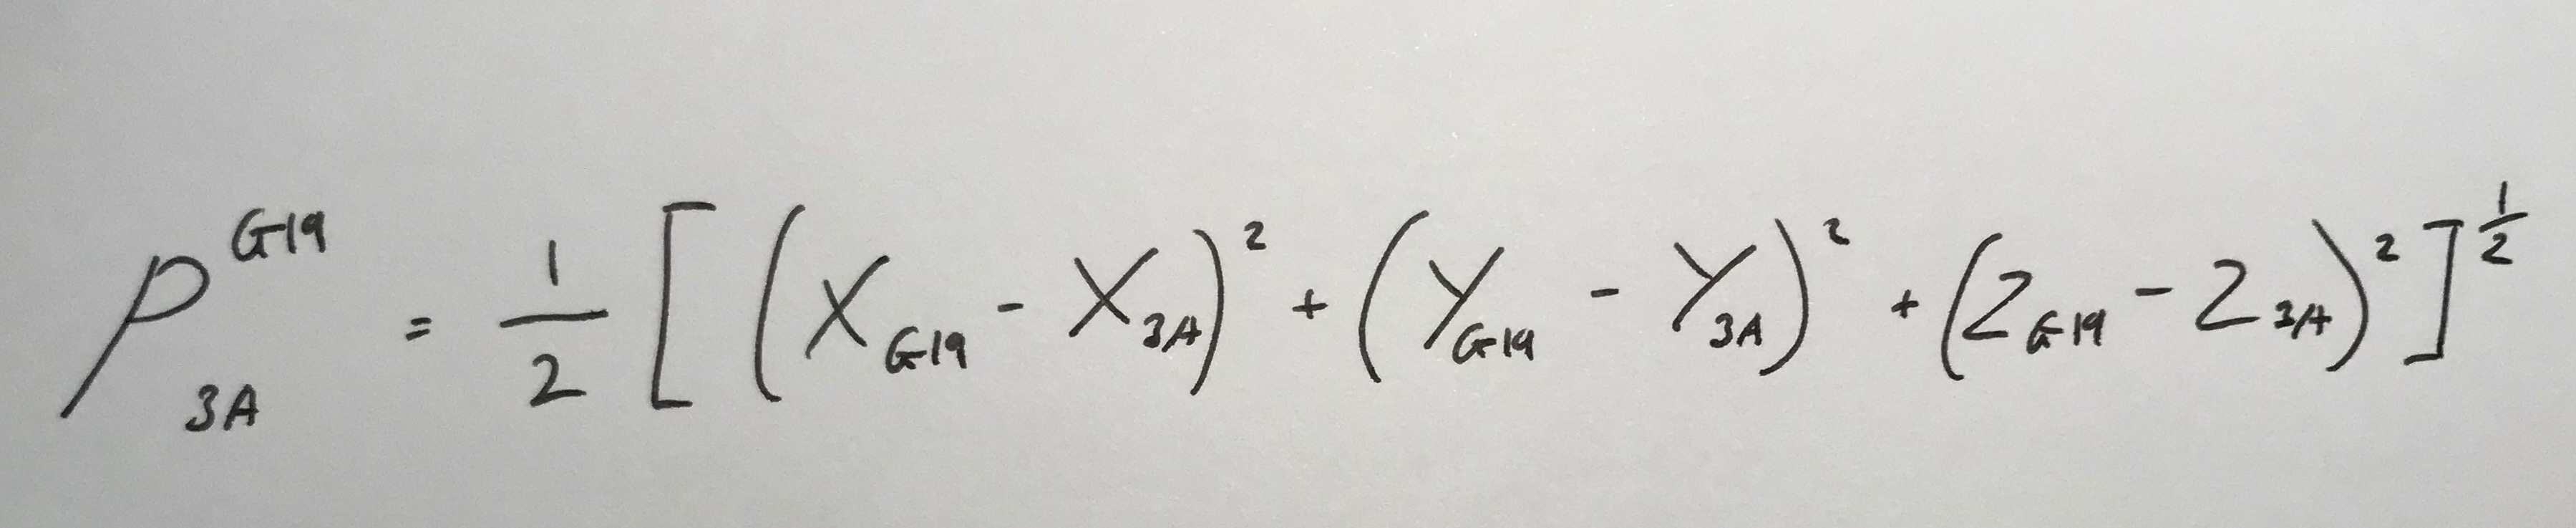 ρ_{3A}^{G19} = \frac{1}{2} [ (X_{G19} - X_{3A})^2 + (Y_{G19} - Y_{3A})^2 + (Z_{G19} - Z_{3A})^2 ]^{\frac{1}{2}}